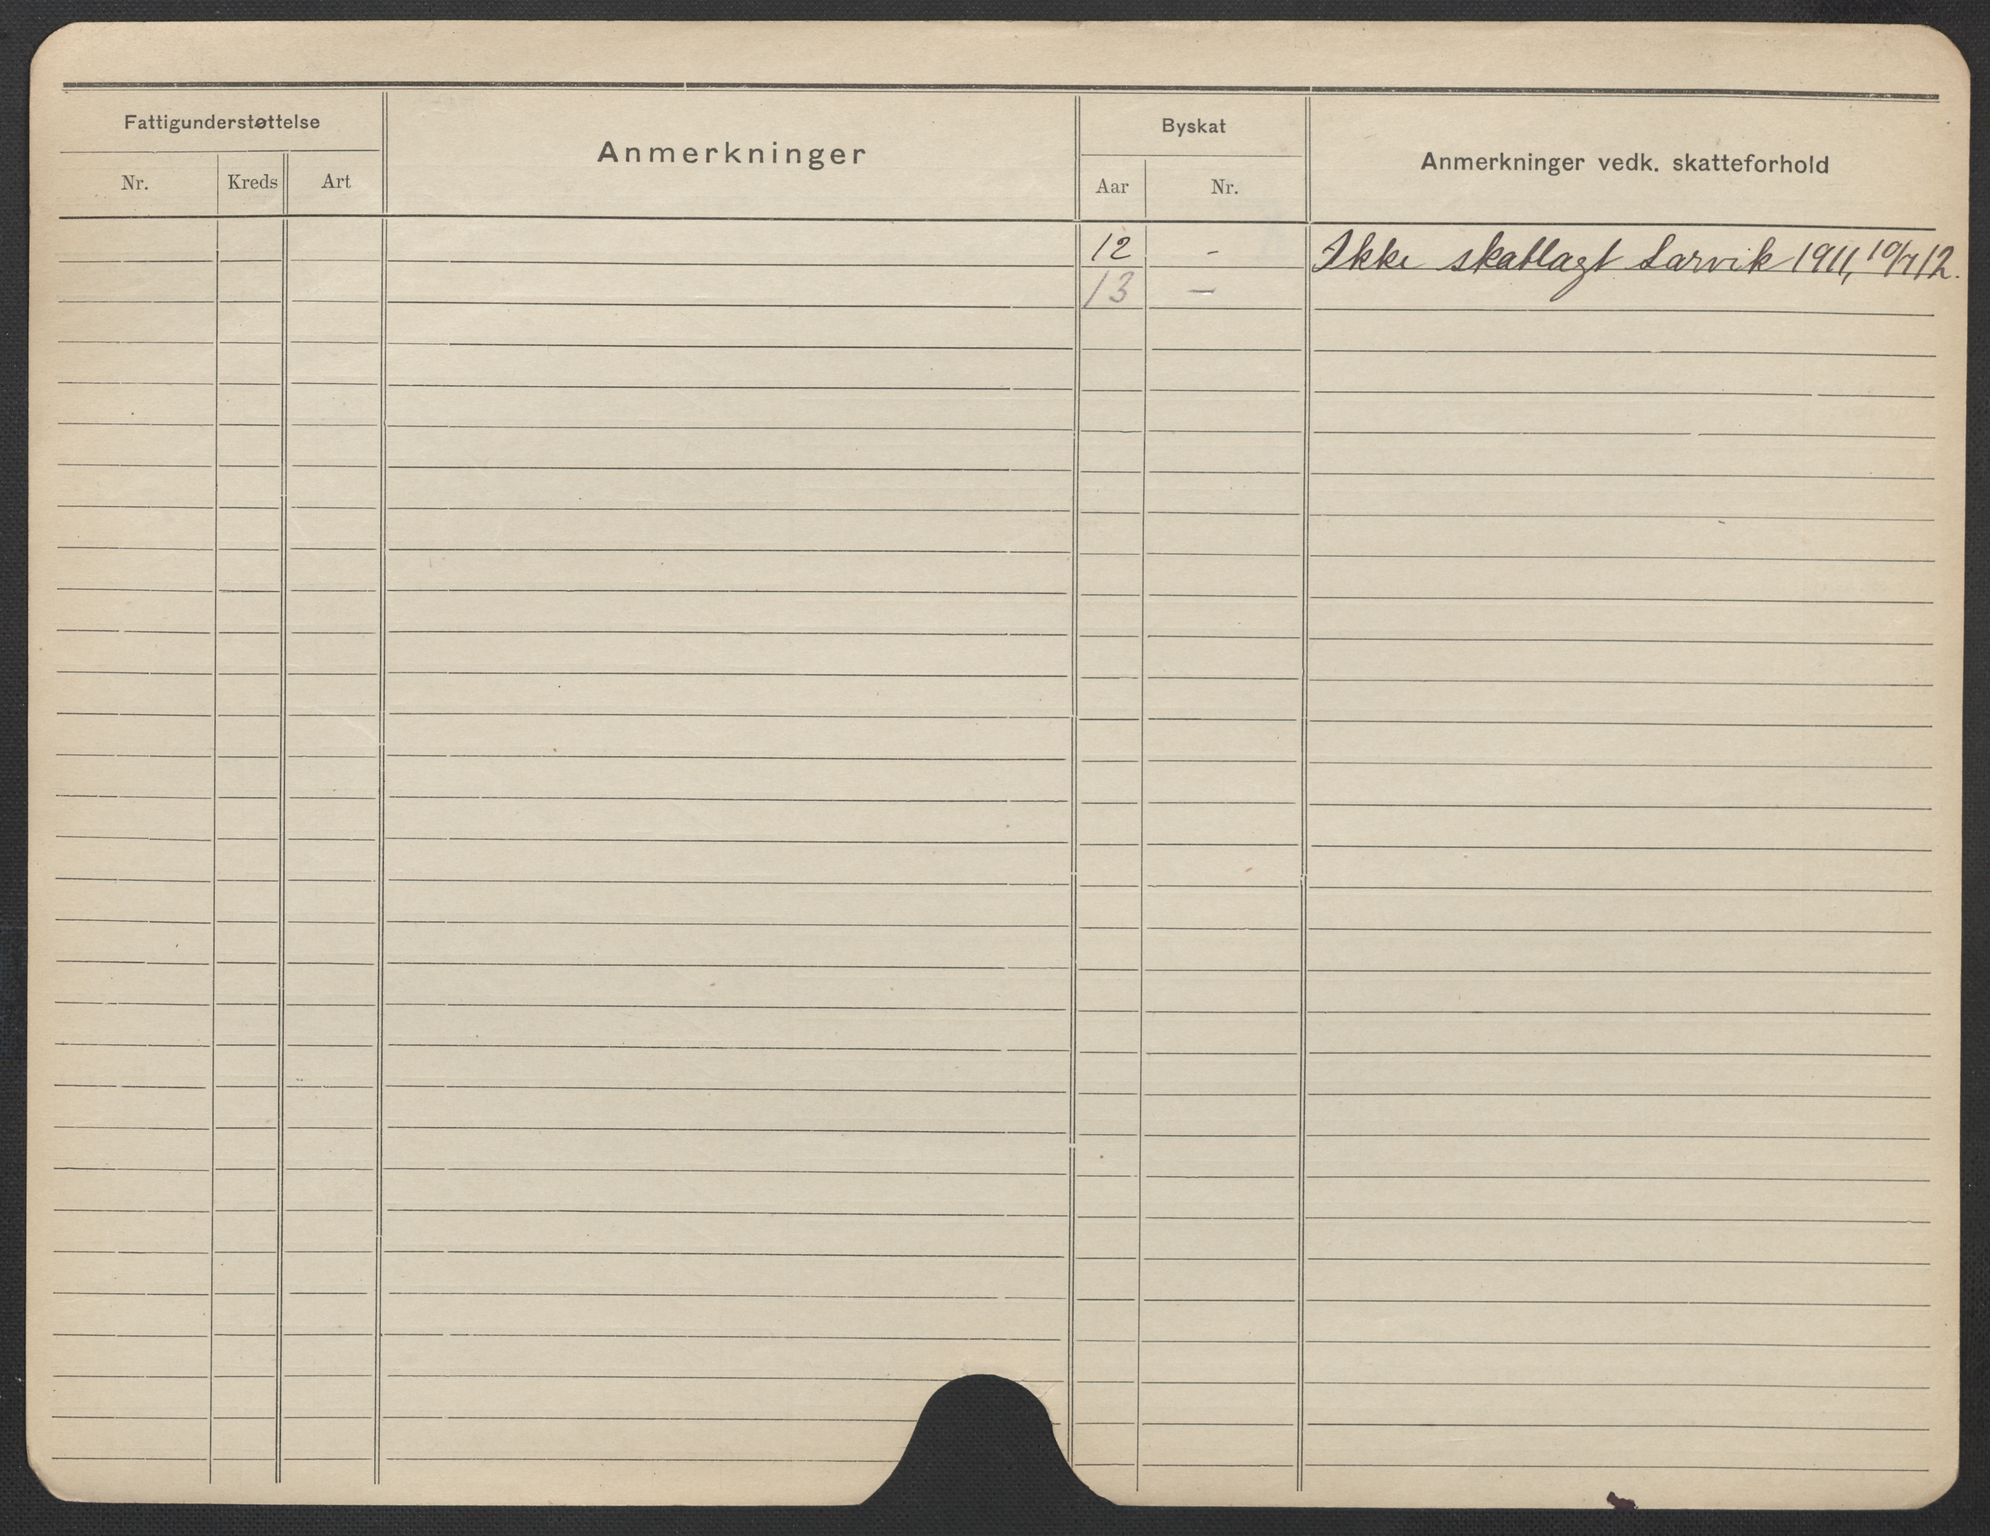 Fattigunderstøttelse
Nr. Kreds Art
Anmerkninger
Byskat
Aar Nr.
Anmerkninger vedk. skatteforhold
12 - Ikke skatlagt Larvik 1911, 10/7 12.
13 —